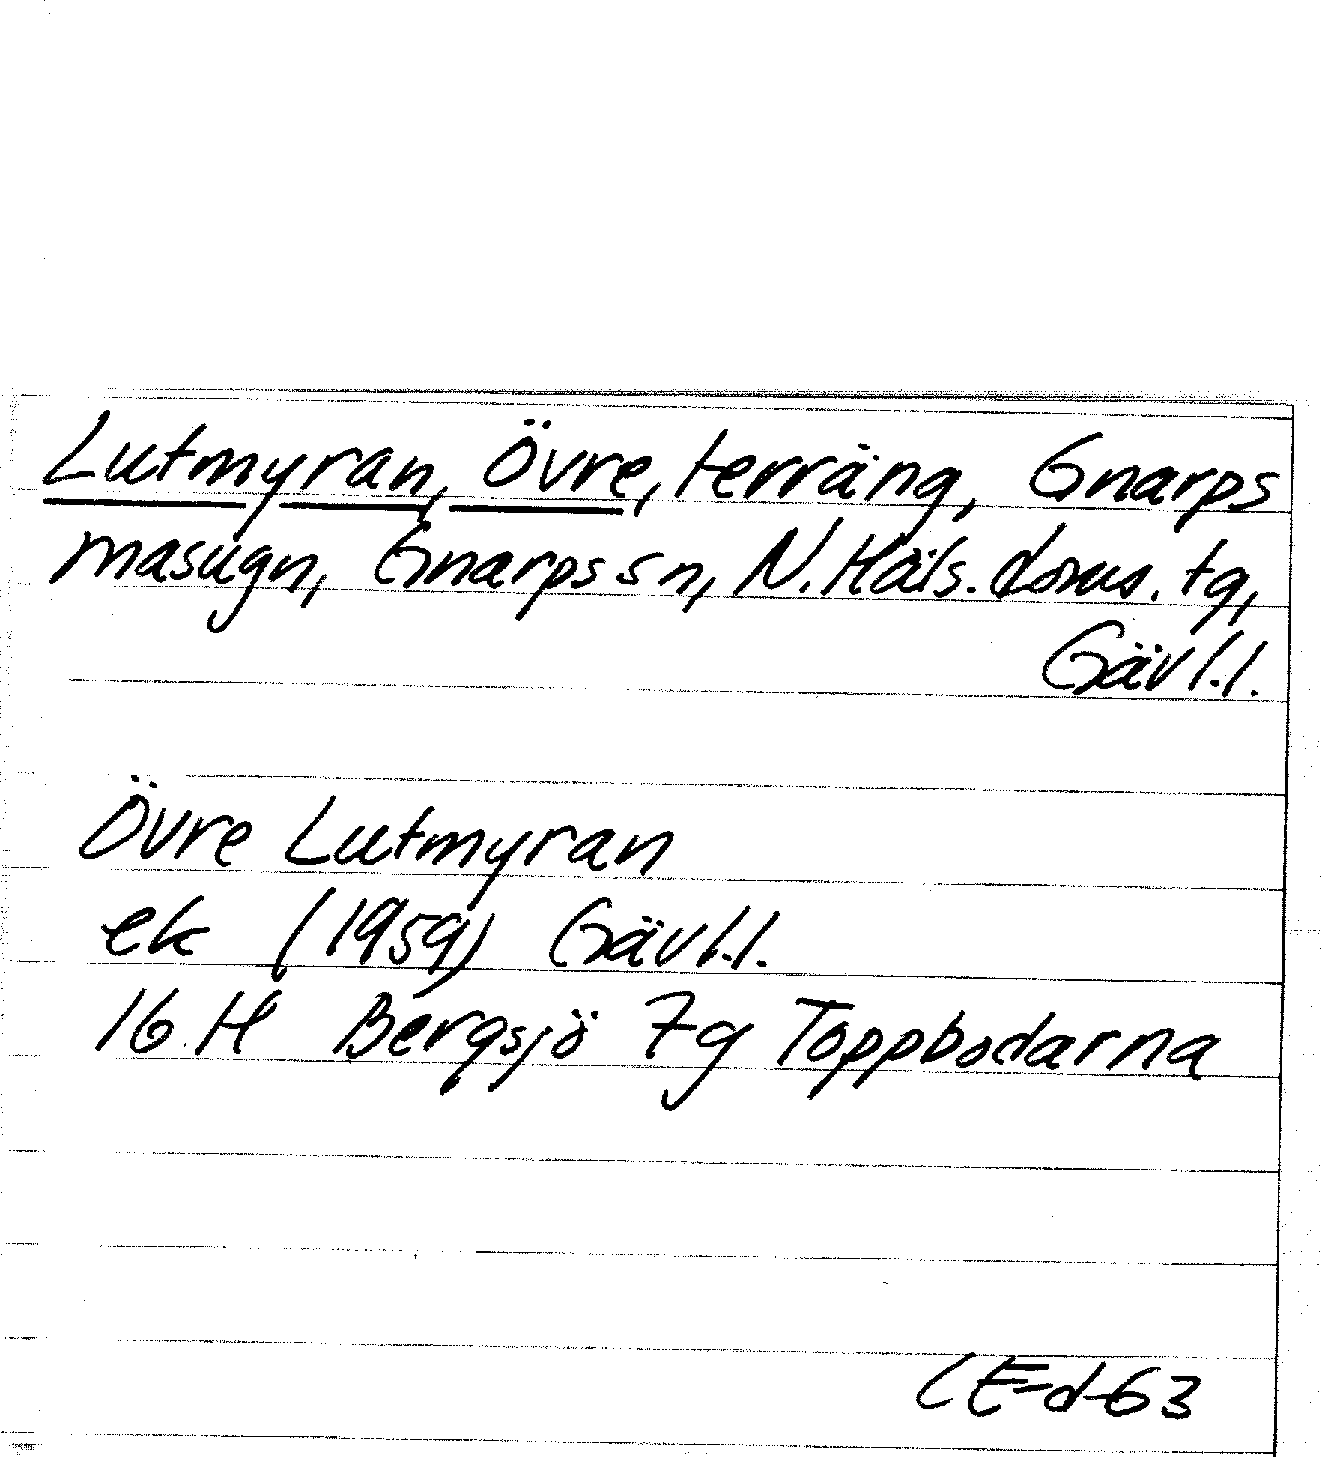 Lutmyran, Övre, terräng, Gnarps
masugn, Gnarps sn, N. Häls. doms. tg,
Gävl.l.
Övre Lutmyran
ek (1959) Gävl.l.
16 H Bergsjö 7g Toppbodarna